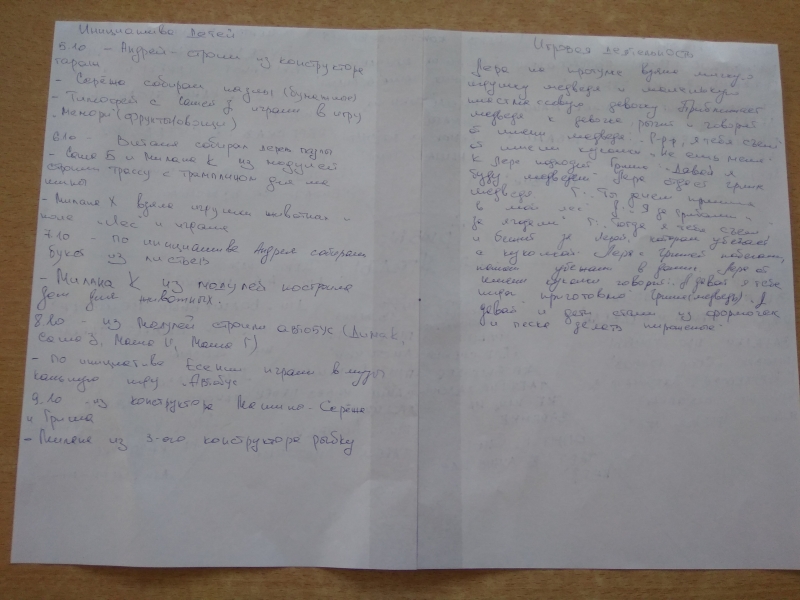 Инициатива детей
5.10 - Андрей - строил из конструктора
гараж
- Серёжа собирал пазлы (бумажное)
- Тимофей с Сашей Б играли в игру
- Мемори (фрукты/овощи)
6.10 - Виталя собирал дерев пазлы
- Саша Б и Милана К из модулей
строили трассу с трамплином для ма
шины
- Милана Х взяла игрушки животных и
поле "Лес" и играла
7.10 - по инициативе Андрея собирали
букет из листьев
- Милана К из модулей построила
дом для животных.
8.10 - из модулей строили автобус (Дима К,
Саша Б, Маша И, Маша Г)
- по инициативе Есении играли в музы
кальную игру "Автобус"
9.10 - из конструктора Машина - Серёжа
и Гриша
- Милана из з-ого конструктора рыбку
Игровая деятельность
Лера на прогулке взяла мягкую
игрушку медведя и маленькую
пластмассовую девочку. Приближает
медведя к девочке рычит и говорит
от имени медведя: "Р-р-р, я тебя съем"
от имени куколки: "не ешь меня"
К Лере подходит Гриша: "Давай я
буду медведем" Лера отдает Грише
медведя. Г: "Ты зачем пришла
в мой лес" Л: "Я за грибами,
за ягодами" Г: "Тогда я тебя съем"
и бежит за Лерой, которая убегает
с куколкой. Лера с Гришей побегали,
потом убежали в домик. Лера от
имени куколки говорит: "А давай я тебе
пиццы приготовлю" Гриша (медведь): "А
давай" и дети стали из формочек
и песка делать пирожное.